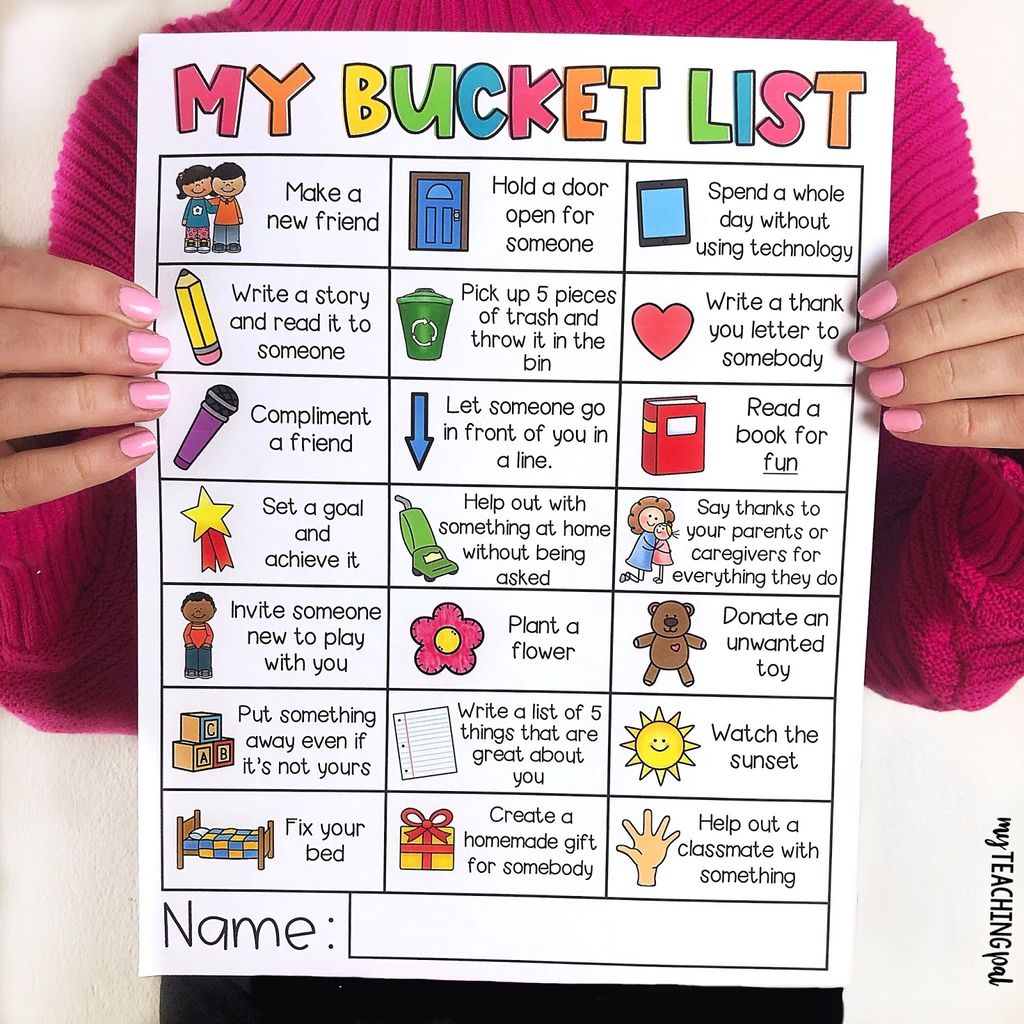 MY BUCKET LIST
Make a
new friend
Hold a door
open for
someone
Spend a whole
day without
using technology
Write a story
and read it to
someone
Pick up 5 pieces
of trash and
throw it in the
bin
Write a thank
you letter to
somebody
Compliment
a friend
Let someone go
in front of you in
a line.
Read a
book for
fun
Set a goal
and
achieve it
Help out with
something at home
without being
asked
Say thanks to
your parents or
caregivers for
everything they do
Invite someone
new to play
with you
Plant a
flower
Donate an
unwanted
toy
C
A B
Put something
away even if
it's not yours
Write a list of 5
things that are
great about
you
Watch the
sunset
Fix your
bed
Create a
homemade gift
for somebody
Help out a
classmate with
something
Name:
my TEACHING pal